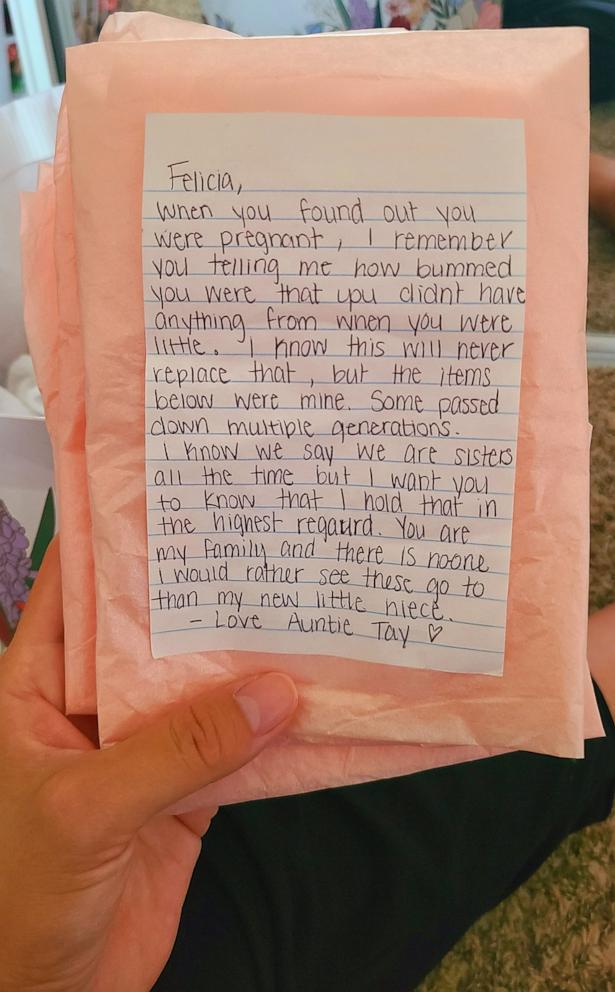 Felicia,
When you found out you
were pregnant, I remember
you telling me how bummed
you were that you didnt have
anything from when you were
little. I know this will never
replace that, but the items
below were mine. Some passed
down multiple generations.
I know we say we are sisters
all the time but I want you
to know that I hold that in
the highest regaurd. You are
my family and there is noone
I would rather see these go to
than my new little niece.
- Love Auntie Tay ♡